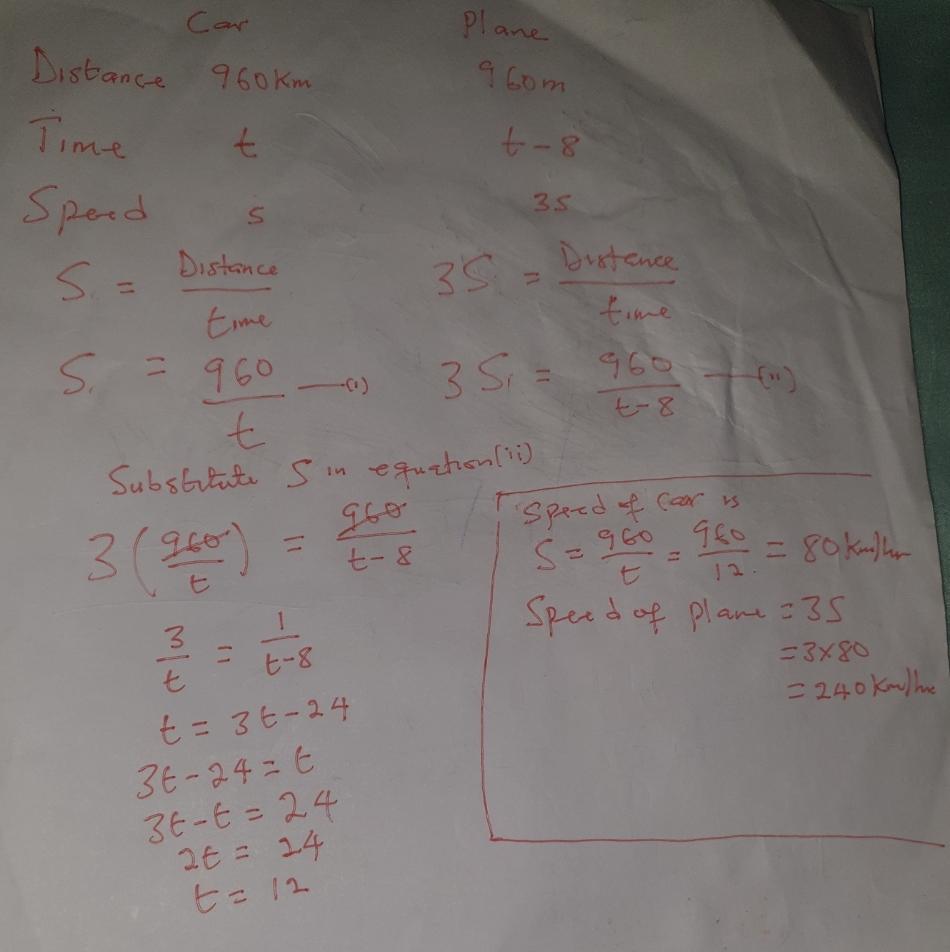 Car Plane
Distance 960Km 960m
Time t t-8
Speed s 3s
S = Distance/time 3S = Distance/time
S = 960/t —(i) 3S = 960/t-8 —(ii)
Substitute S in equation(ii)
3(960/t) = 960/t-8
3/t = 1/t-8
t = 3t-24
3t-24=t
3t-t=24
2t = 24
t = 12
Speed of Car is
S = 960/t = 960/12 = 80Km/hr
Speed of plane = 3S
=3×80
=240Km/hr